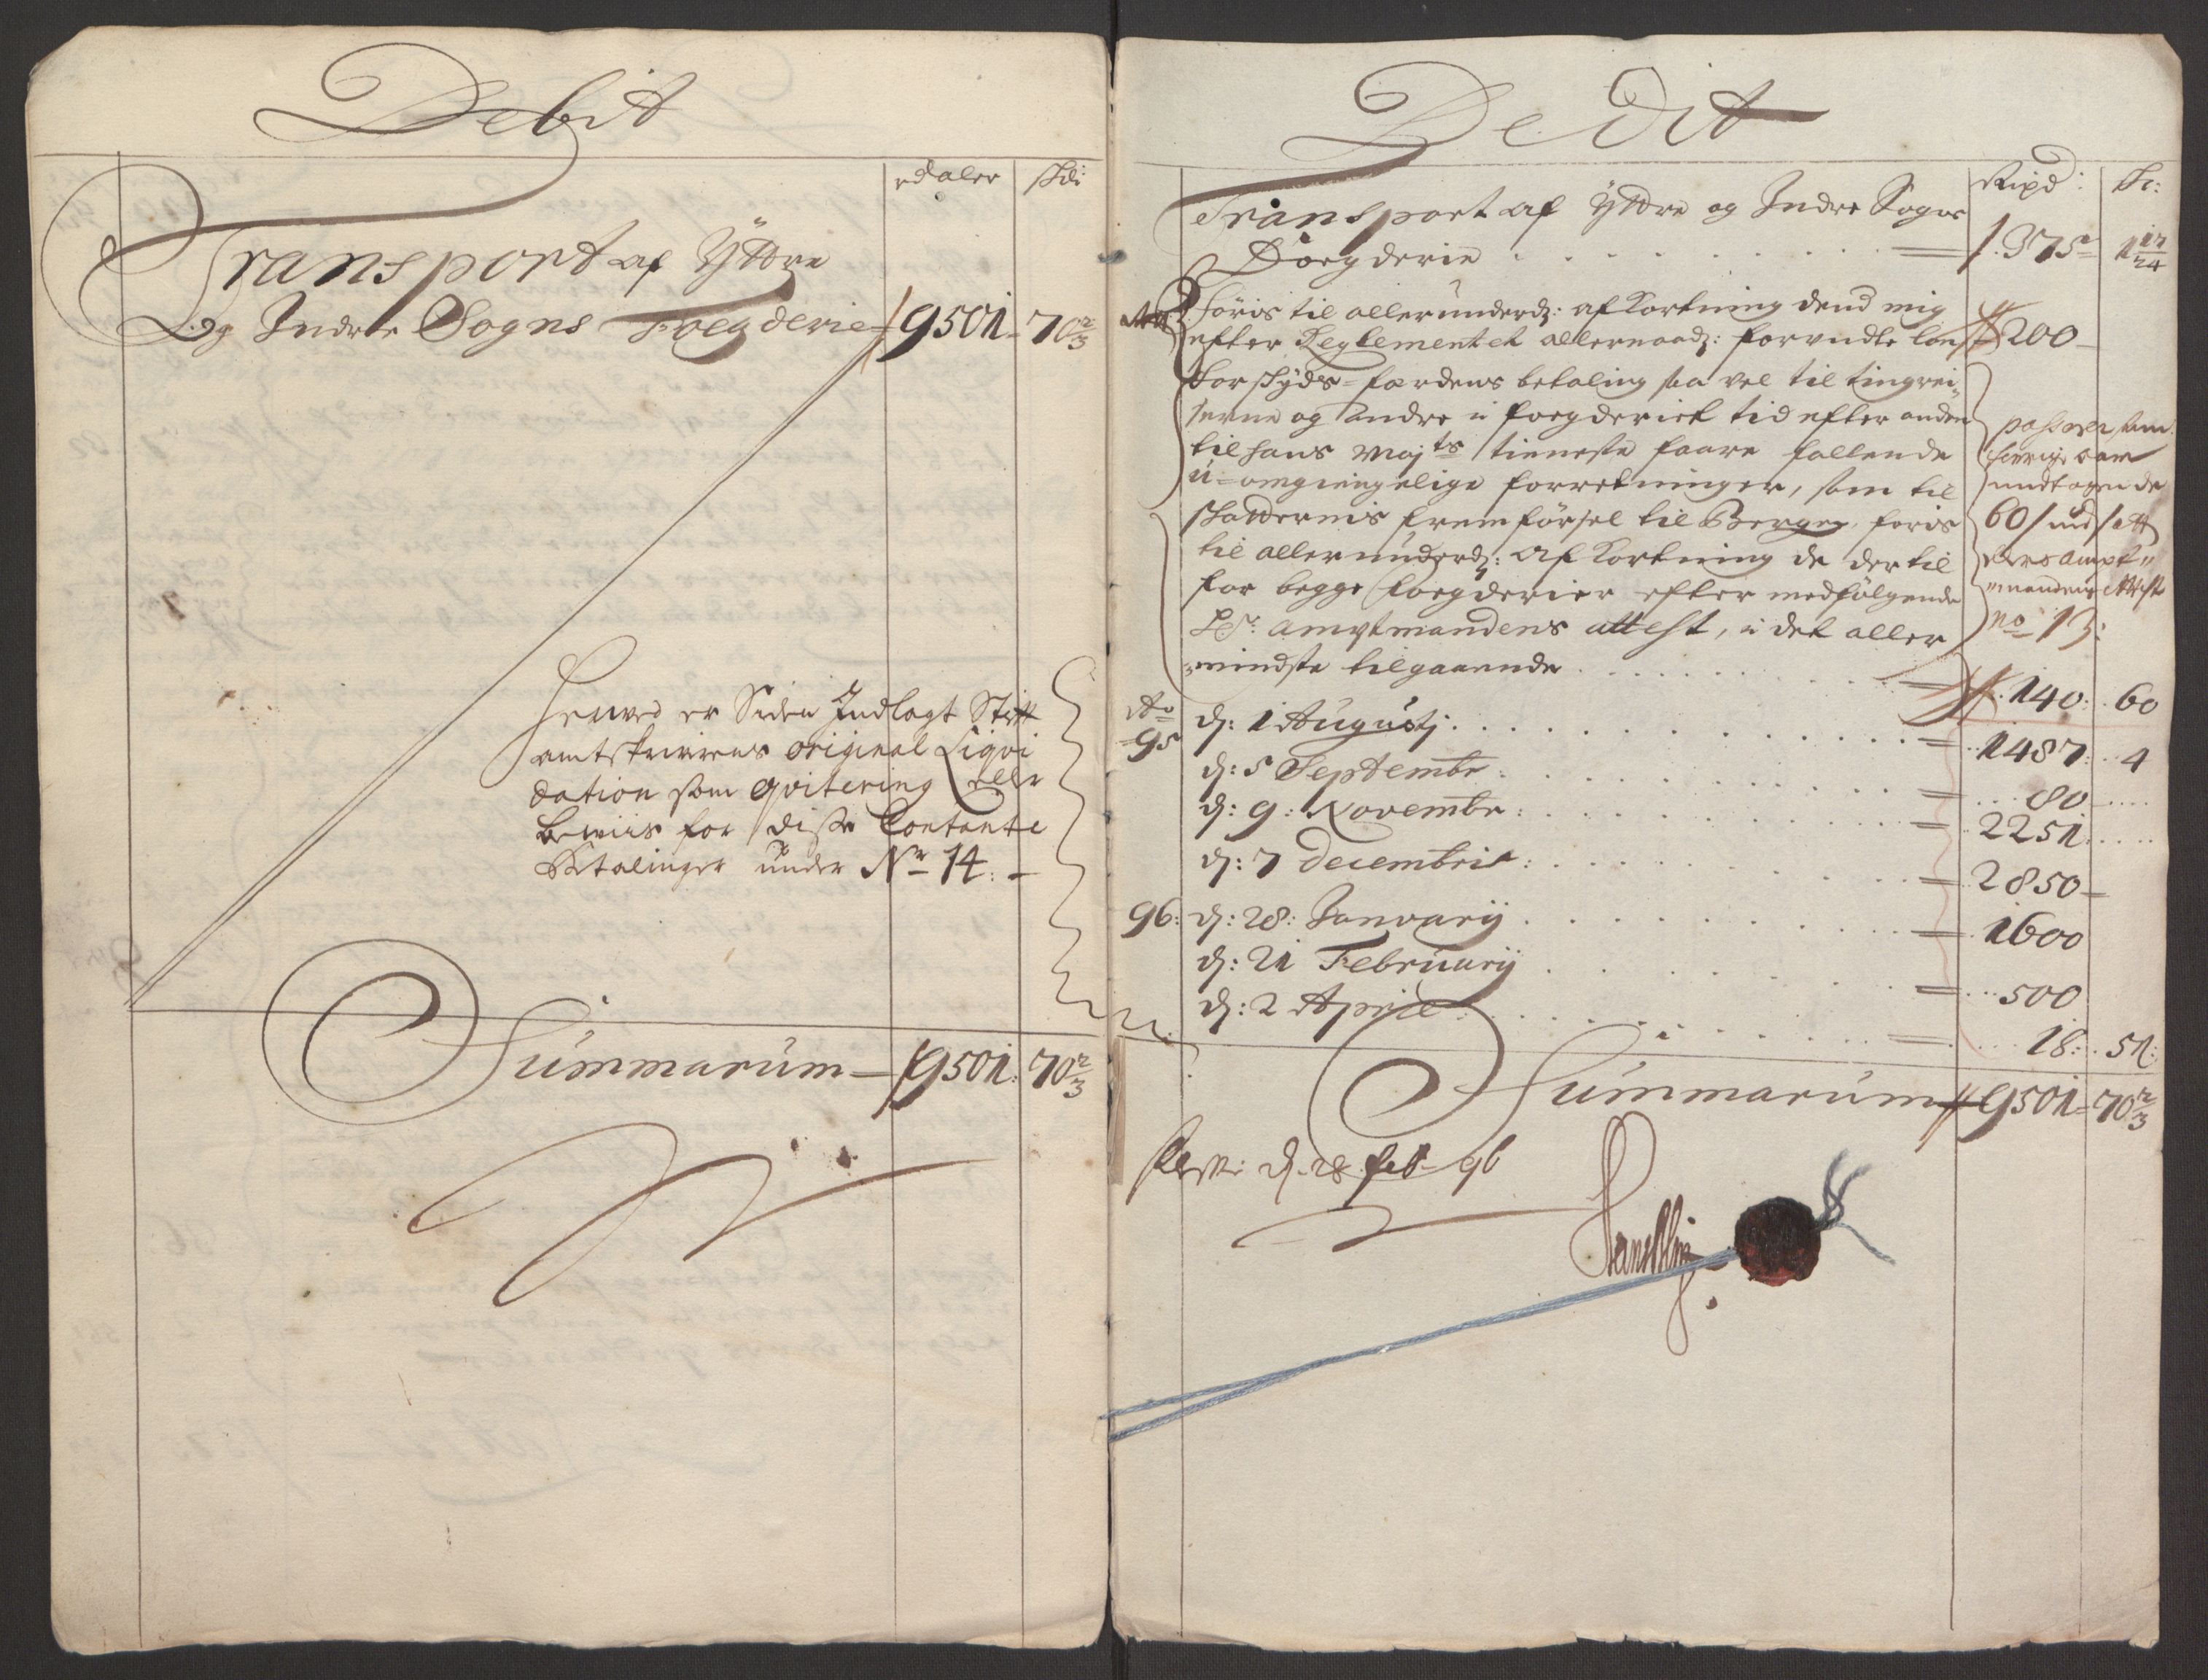 Debit
rdaler skði
Transport af Ÿttre
Og Indre Sogns Foegderie 9501 70 2/3
Herved er Siden Indlagt Stift
amtskrivrens original Liqvi
dation som qvitering eller
beviis for disse Contante
Betalinger under Nr 14:
Summarum 9501: 70 2/3
Dedit
Rixd: Sk:
Transport af Ÿttre og Indre Sogns
Foegderie . . . . . . 375 1 17/24
Föris til allerunderd: afkortning dend mig
efter Reglementet allernaad: forundte løn 200
For skÿds-færdens betaling saa vel til tingrei-
serne og andre i foegderiet tid efter anden
til hans Maj:ts tieneste faare fallende
u-omgiengelige forretninger, som til
skatternis fremförsel til Bergen, foris
til allerunderd: afkortning de dertil
for begge foegderier efter medfölgende
Hr: amptmandens attest, i det aller
mindste tilgaaende . . . . . . 140: 60
passerer som
undtagen de
60
ampt-
mandens attest
no 13:
Ao
95 d: 1 Augustj: . . . . . . 1487: 4
d: 5 Septembr: . . . . . . 80
d: 9: Novembr: . . . . . . 2251
d: 7 decembris: . . . . . . 2850
96: d: 28: Januarij . . . . . . 1600
d: 21 Februarij . . . . . . 500
d: 2 April: . . . . . . 18: 51:
Summarum 9501 70 2/3
d. 28 feb- 96